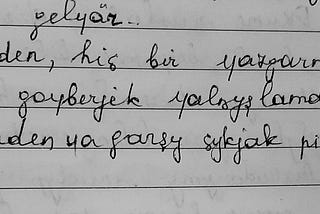 gelyär..
den, hiç bir ýazgarn
goýberjek ýalňyşlama
nden ýa garşy çykjak pi